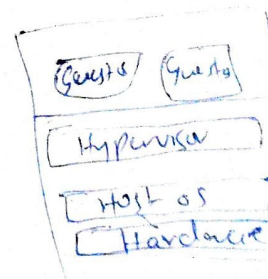 Guest os Guest os
Hypervisor
Host os
Hardware